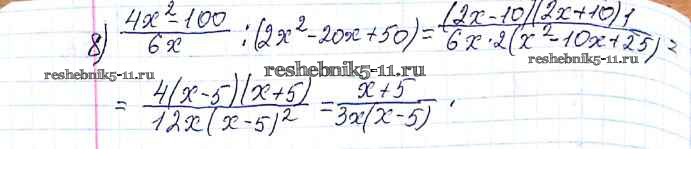 8) (4x²-100)/(6x) : (2x²-20x+50) = ((2x-10)(2x+10)1)/(6x·2(x²-10x+25)) =
reshebnik5-11.ru reshebnik5-11.ru
reshebnik5-11.ru
= (4(x-5)(x+5))/(12x(x-5)²) = (x+5)/(3x(x-5)) .